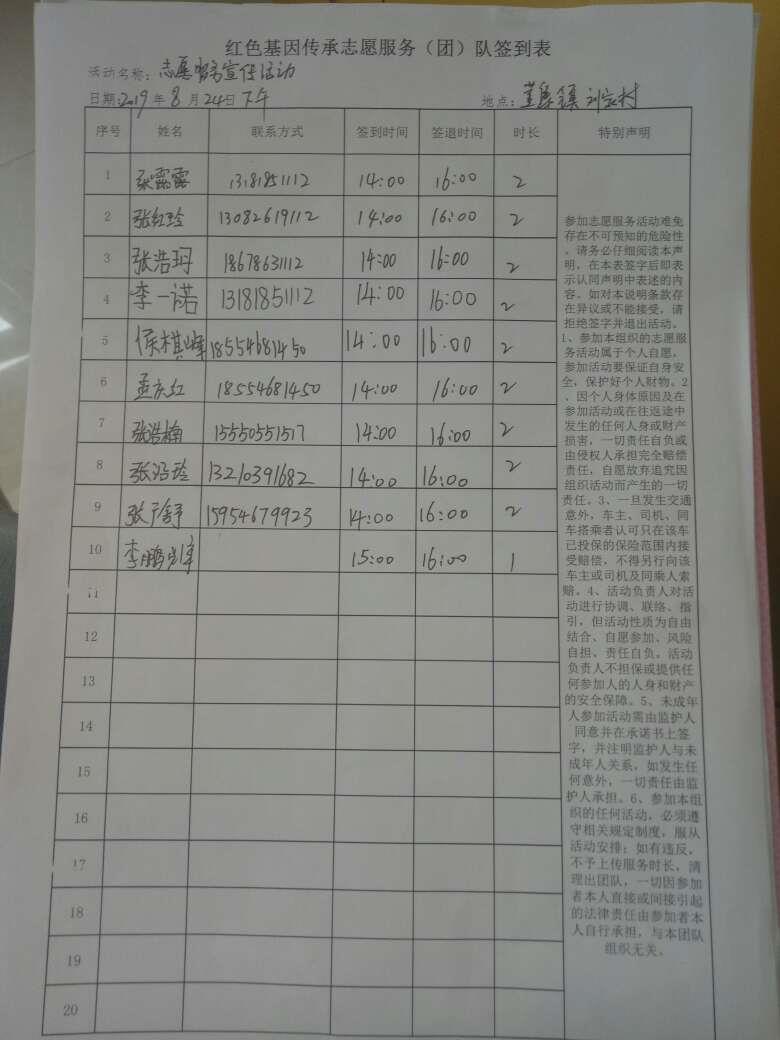 红色基因传承志愿服务（团）队签到表
活动名称：志愿服务宣传活动
日期：2019年8月24日下午 地点：董集镇刘家村
序号 姓名 联系方式 签到时间 签退时间 时长 特别声明
1 张露露 13181851112 14:00 16:00 2
2 张红玲 13082619112 14:00 16:00 2
3 张浩玥 18678631112 14:00 16:00 2
4 李一诺 13181851112 14:00 16:00 2
5 侯棋峰 18554681450 14:00 16:00 2
6 孟庆红 18554681450 14:00 16:00 2
7 张浩楠 15550551517 14:00 16:00 2
8 张冯玲 13210391682 14:00 16:00 2
9 张广舒 15954679923 14:00 16:00 2
10 李鹏 15:00 16:00 1
11
12
13
14
15
16
17
18
19
20
参加志愿服务活动难免
存在不可预知的危险性
，请务必仔细阅读本声
明，在本表签字后即表
示认同声明中表述的内
容。如对本说明条款存
在异议或不能接受，请
拒绝签字并退出活动。
1、参加本组织的志愿服
务活动属于个人自愿，
参加活动要保证自身安
全，保护好个人财物。2
、因个人身体原因及在
参加活动或在往返途中
发生的任何人身或财产
损害，一切责任自负或
由侵权人承担完全赔偿
责任，自愿放弃追究因
组织活动而产生的一切
责任。3、一旦发生交通
意外，车主、司机、同
车搭乘者认可只在该车
已投保的保险范围内接
受赔偿，不得另行向该
车主或司机及同乘人索
赔。4、活动负责人对活
动进行协调、联络、指
引，但活动性质为自由
结合、自愿参加、风险
自担、责任自负。活动
负责人不担保或提供任
何参加人的人身和财产
的安全保障。5、未成年
人参加活动需由监护人
同意并在承诺书上签
字，并注明监护人与未
成年人关系，如发生任
何意外，一切责任由监
护人承担。6、参加本组
织的任何活动，必须遵
守相关规定制度，服从
活动安排；如有违反，
不予上传服务时长，清
理出团队，一切因参加
者本人直接或间接引起
的法律责任由参加者本
人自行承担，与本团队
组织无关。